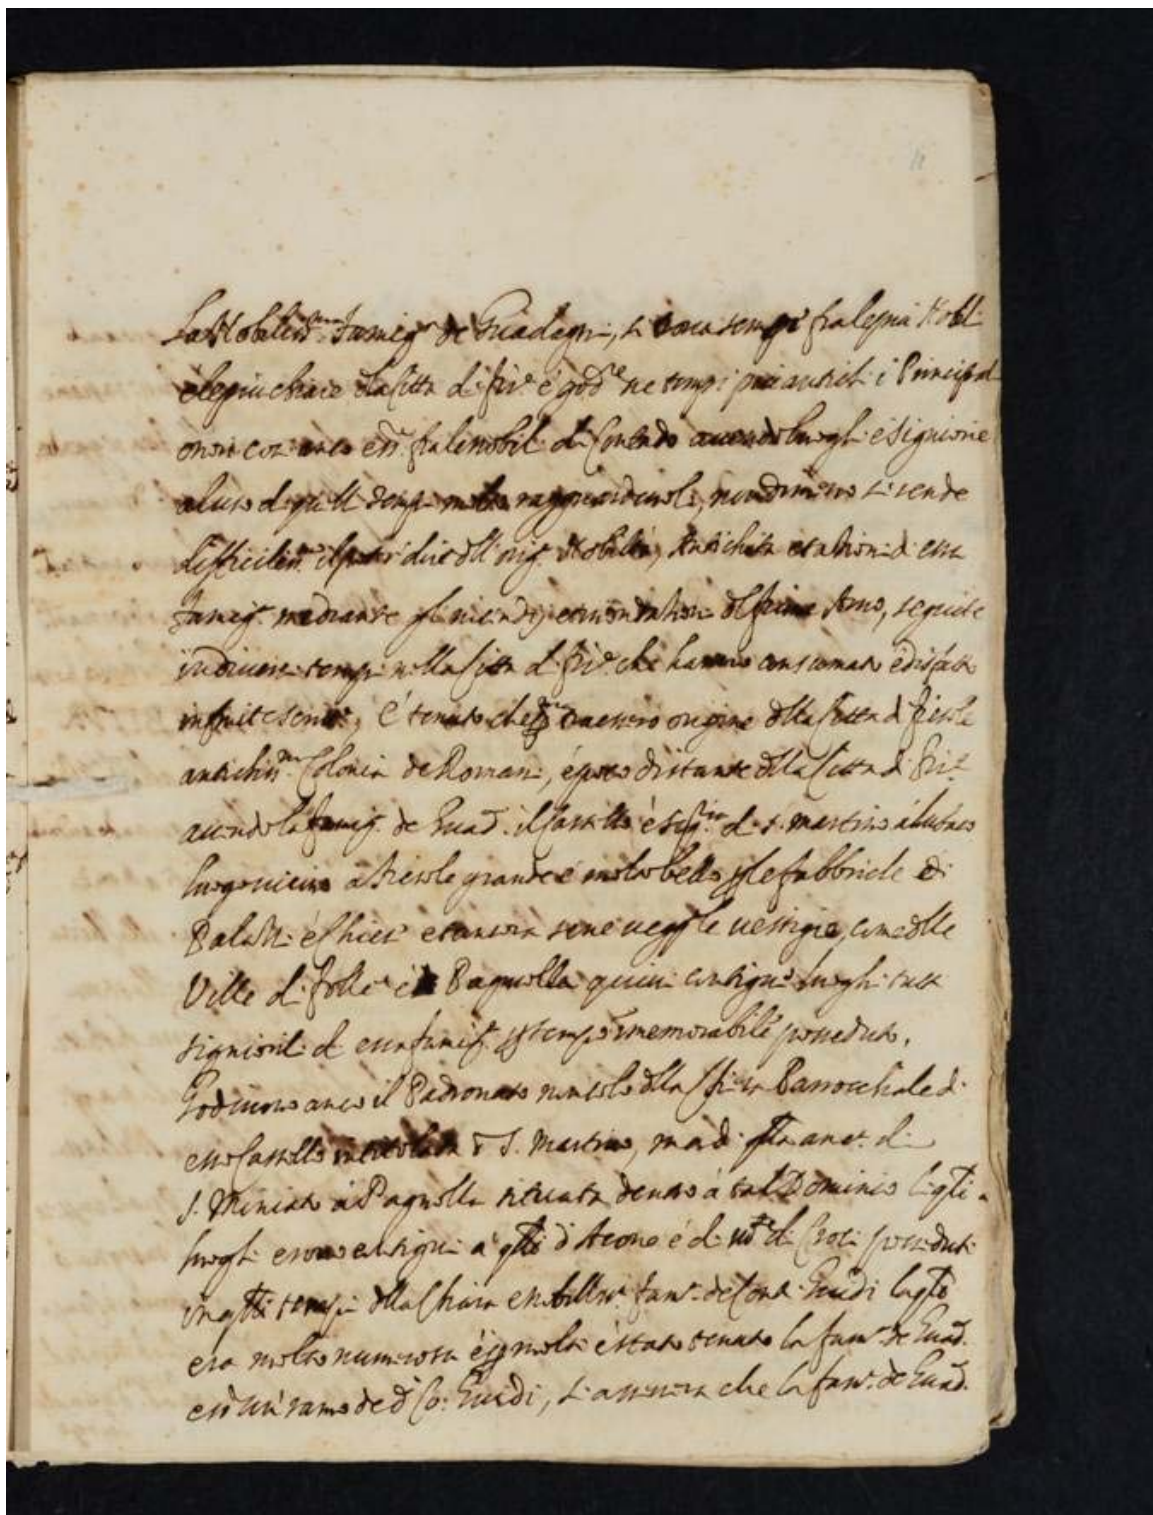 La Nobiliss.ma Famig.a de Guadagni, si trova sempre fra le piu Nobl.
e le piu chiare della Citta di Fir.e é god.e ne tempi piu antichi i Principal
onori come anco ess. fra le nobil. di Contado avendo luoghi é signiorie
al uso di quelli tempi molto ragguardevoli, nondimeno si rende
dificiliss. il poter dire dell' orig. Nobiltà, Antichita et azzioni di essa
Famig. mediante gl' incendi, et inondationi del fiume Arno, seguite
in diversi tempi nella Citta di Fir.e che hanno consumato é disfatto
infinite, É tenuto che traessero origine dalla Citta di Fiesole
antichiss.ma Colonia de Romani, é poco distante dalla Citta di Fir.e
avendo la famig. de Guad. il Castello é Sig.ria di S. Martino á
luogo vicino á Fiesole grande é molto bello p le fabbriche di
Palazzi é Chiese et ancora se ne vegg le vestigie, come delle
Ville di é Pagnolla quivi contigui luoghi tutti
signioril di essa famig. p tempo immemorabile posseduto.
Godevono anco il Padronato non solo della Chiesa Parrocchiale di
esso Castello intitolata S. Martino, ma di qlla anco di
S. Miniato á Pagnolla situata dentro á tal Dominio li qli
luoghi erono contigui a' qlli d' Acone é di di Croci posseduti
in qlli tempi dalla Chiara e nobiliss. fam. de Conti Guidi la qle
era molto numerosa é molti é stato tenuto la fam. de Guad.
ess un' ramo de d. Co: Guidi, si asserva che la fam. de Guad.